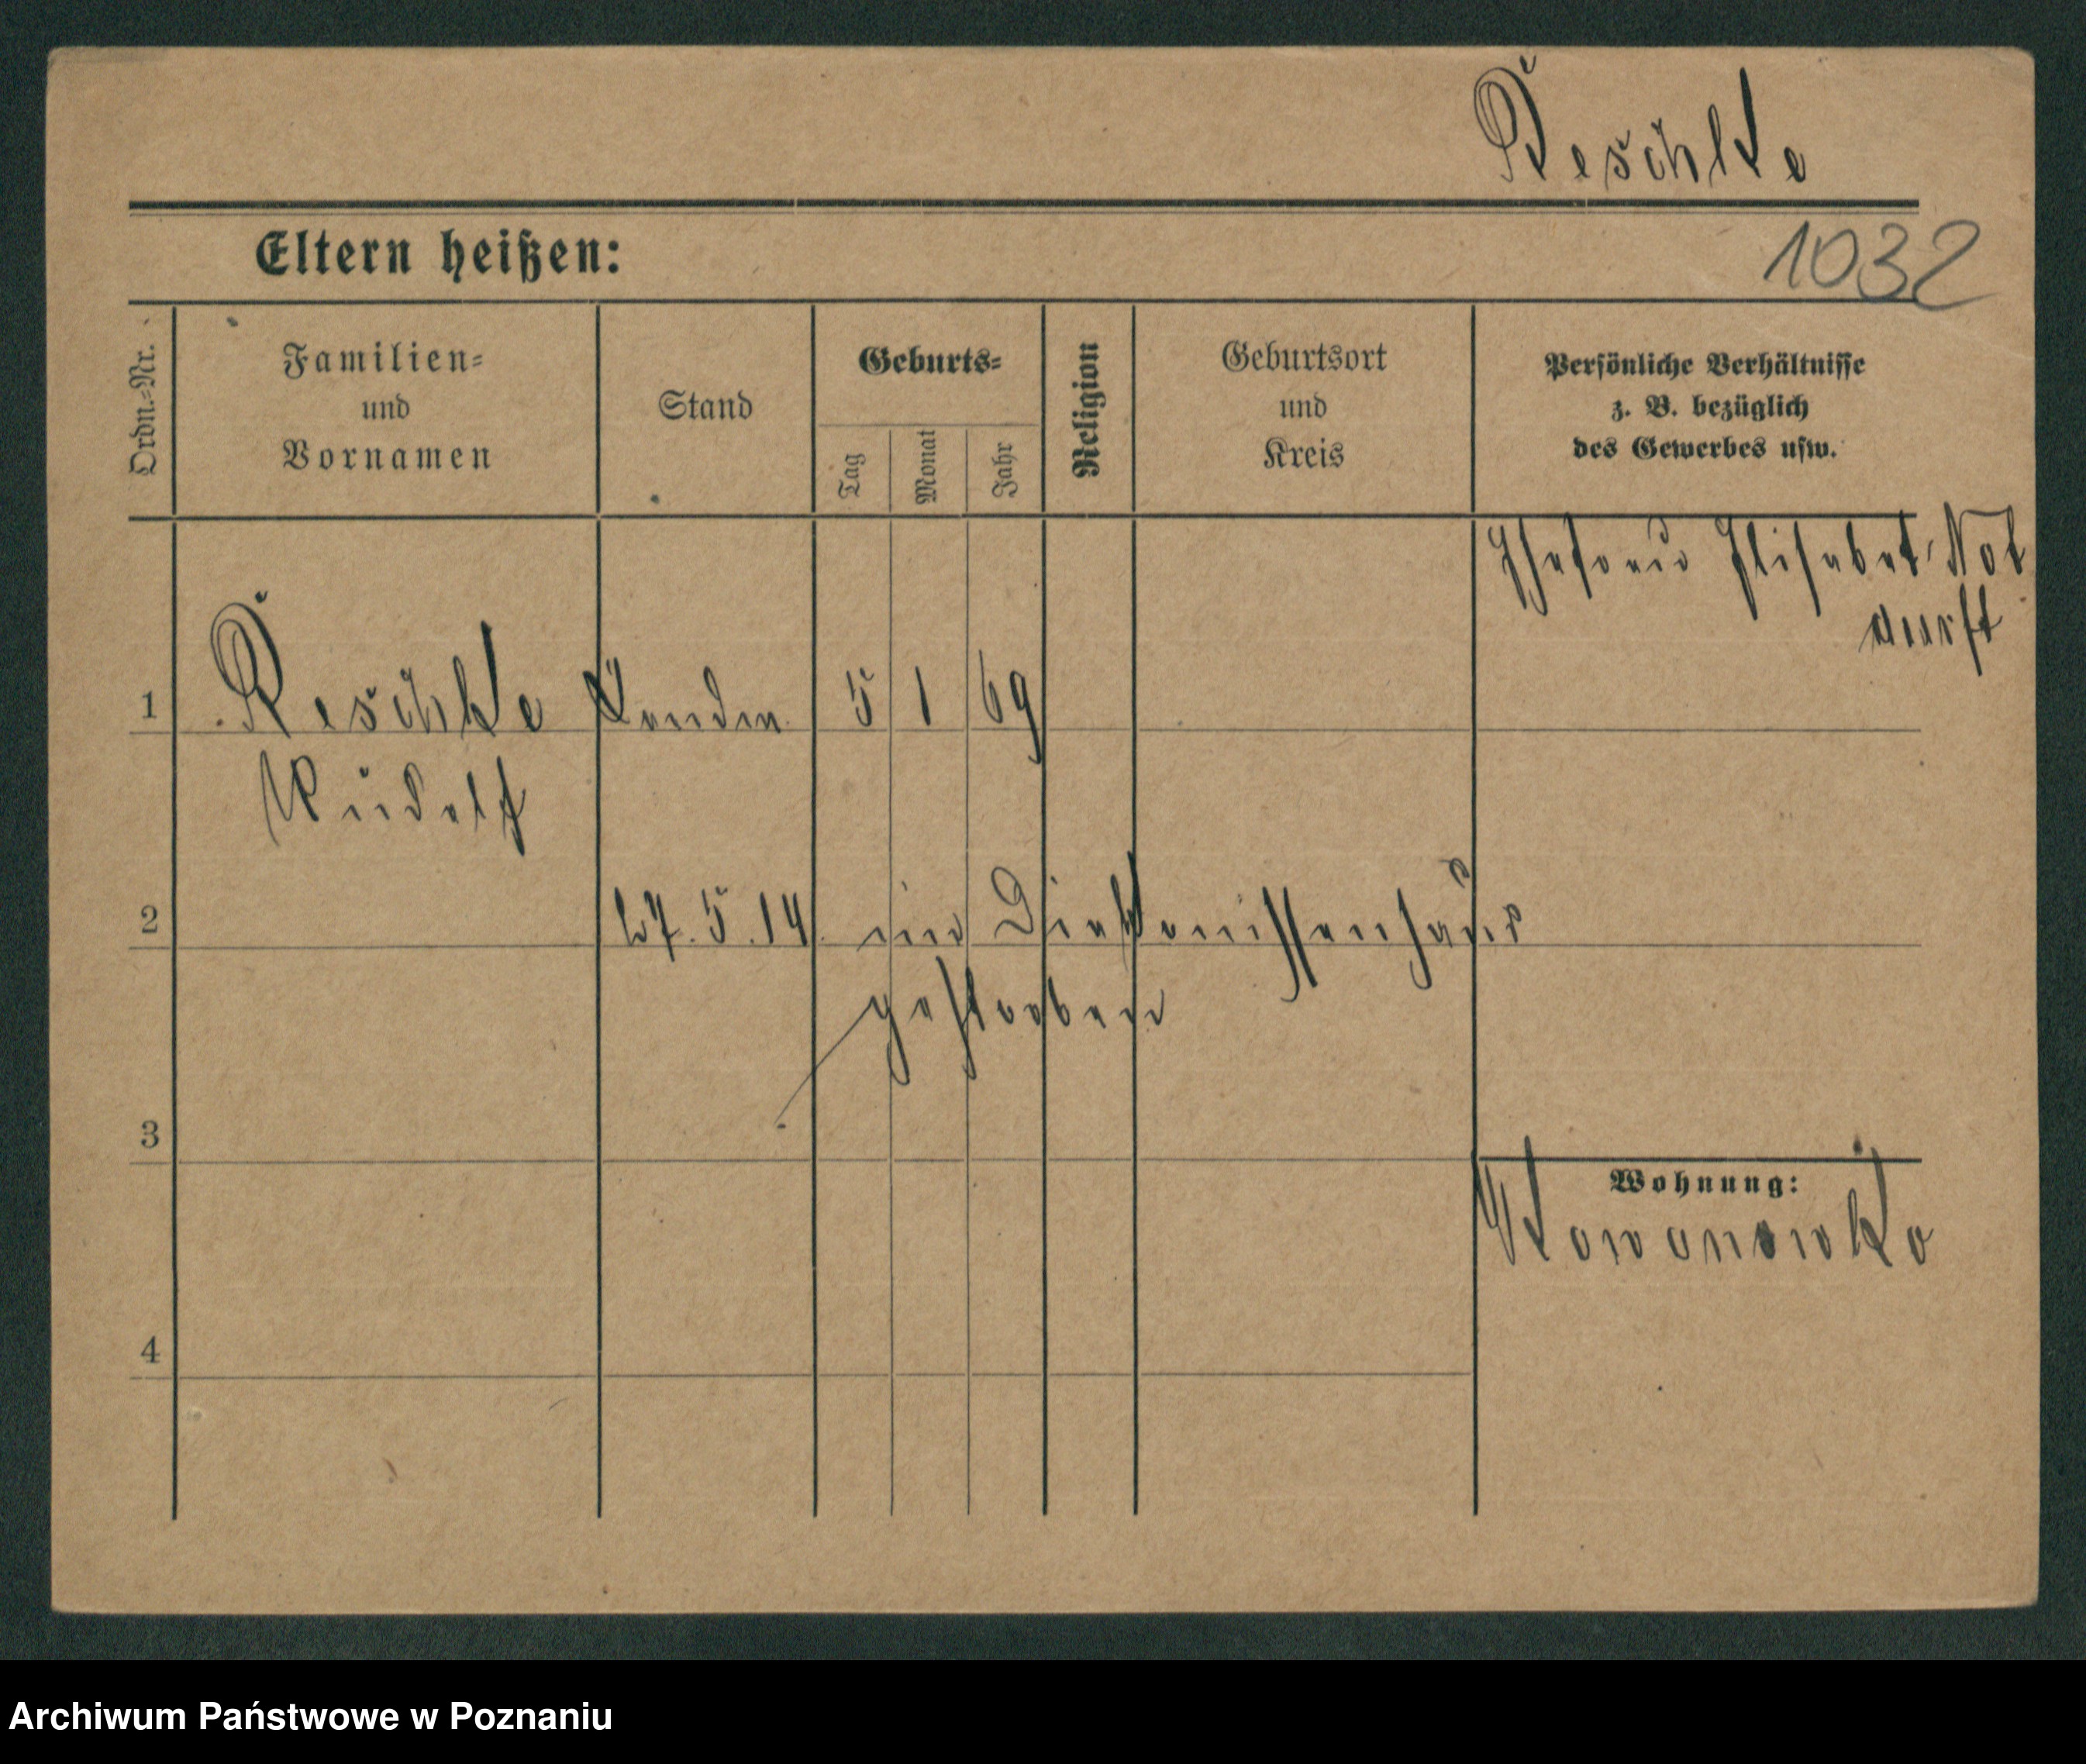 Reschke
Eltern heißen:
1032
Ordn.-Nr.
Familien-
und
Vornamen
Stand
Geburts-
Tag
Monat
Jahr
Religion
Geburtsort
und
Kreis
Persönliche Verhältnisse
z. B. bezüglich
des Gewerbes usw.
Ehefrau Elisabet Not
durft
1
Reschke
5 1 69
Rudolf
2
27. 5. 14. im Diakonissenhaus
gestorben
3
Wohnung:
Nowanowko
4
Archiwum Państwowe w Poznaniu